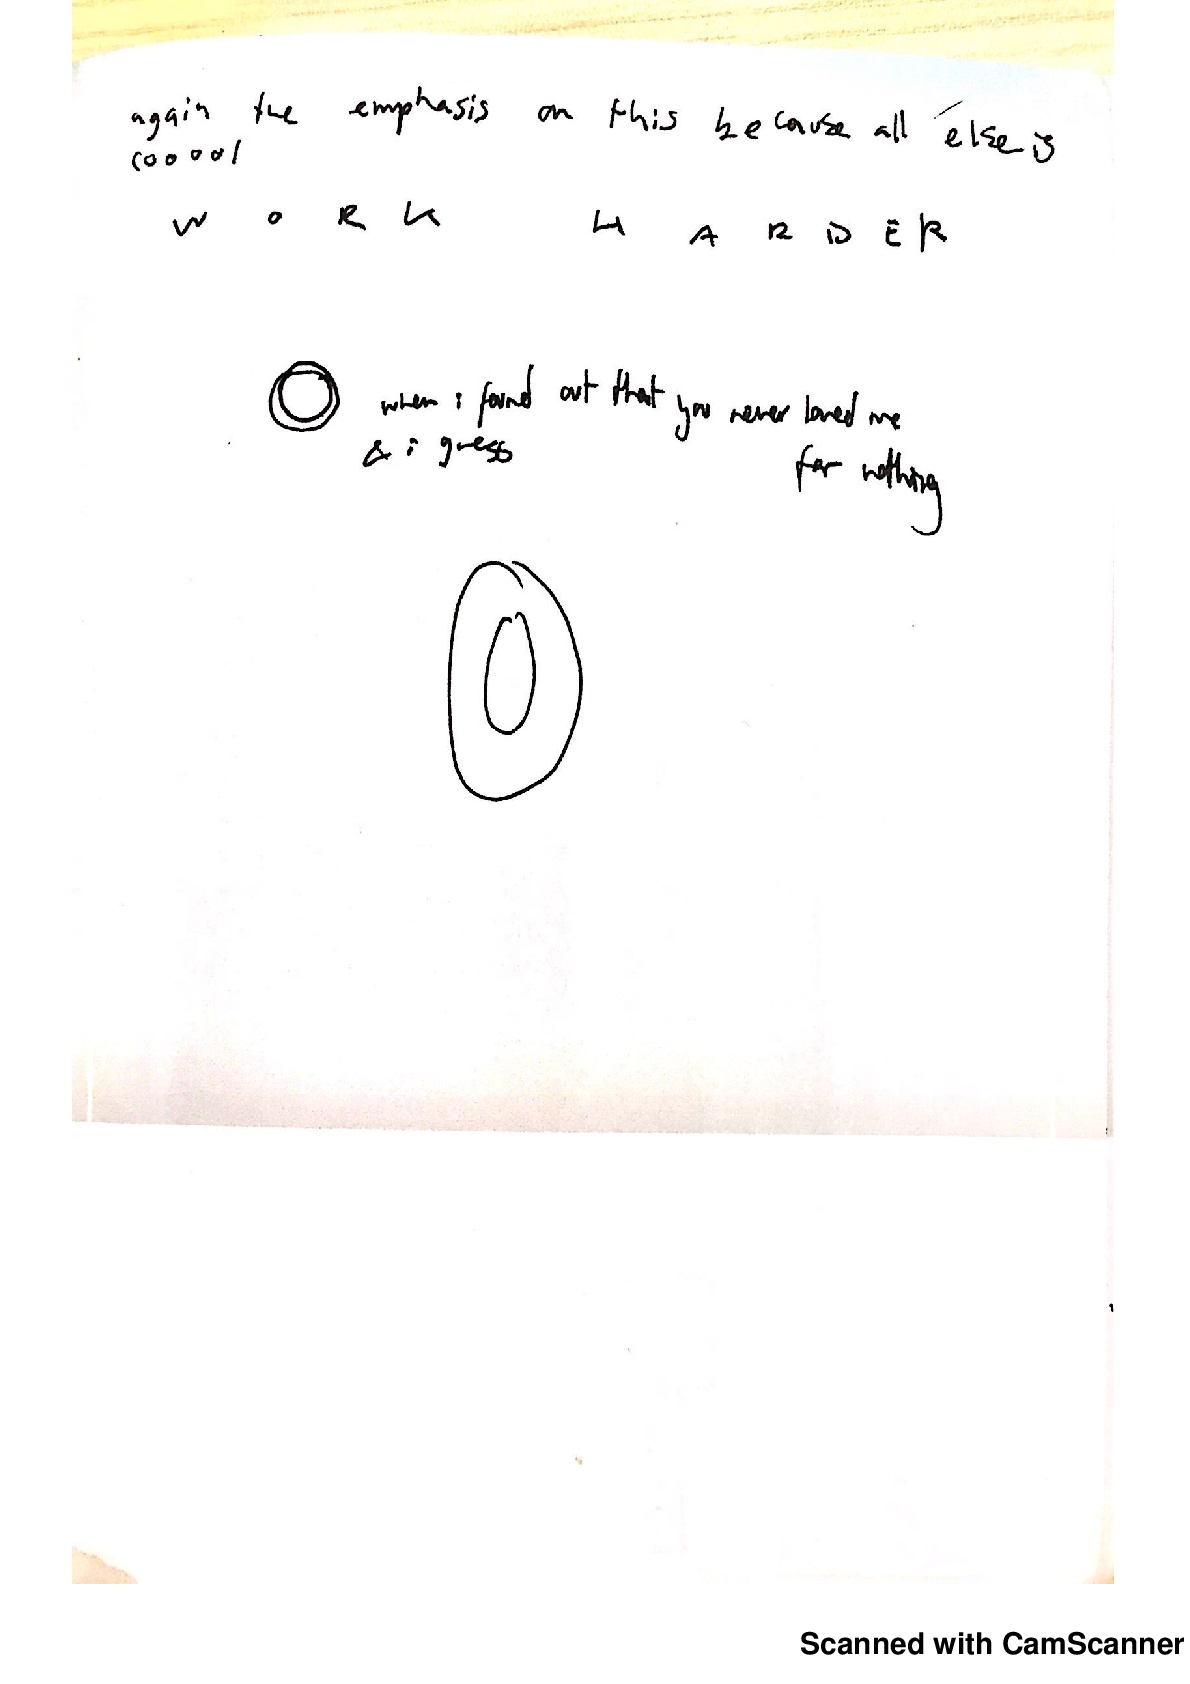 again the emphasis on this because all else is
cooool
W O R K H A R D E R
when i found out that you never loved me
& i guess for nothing
Scanned with CamScanner